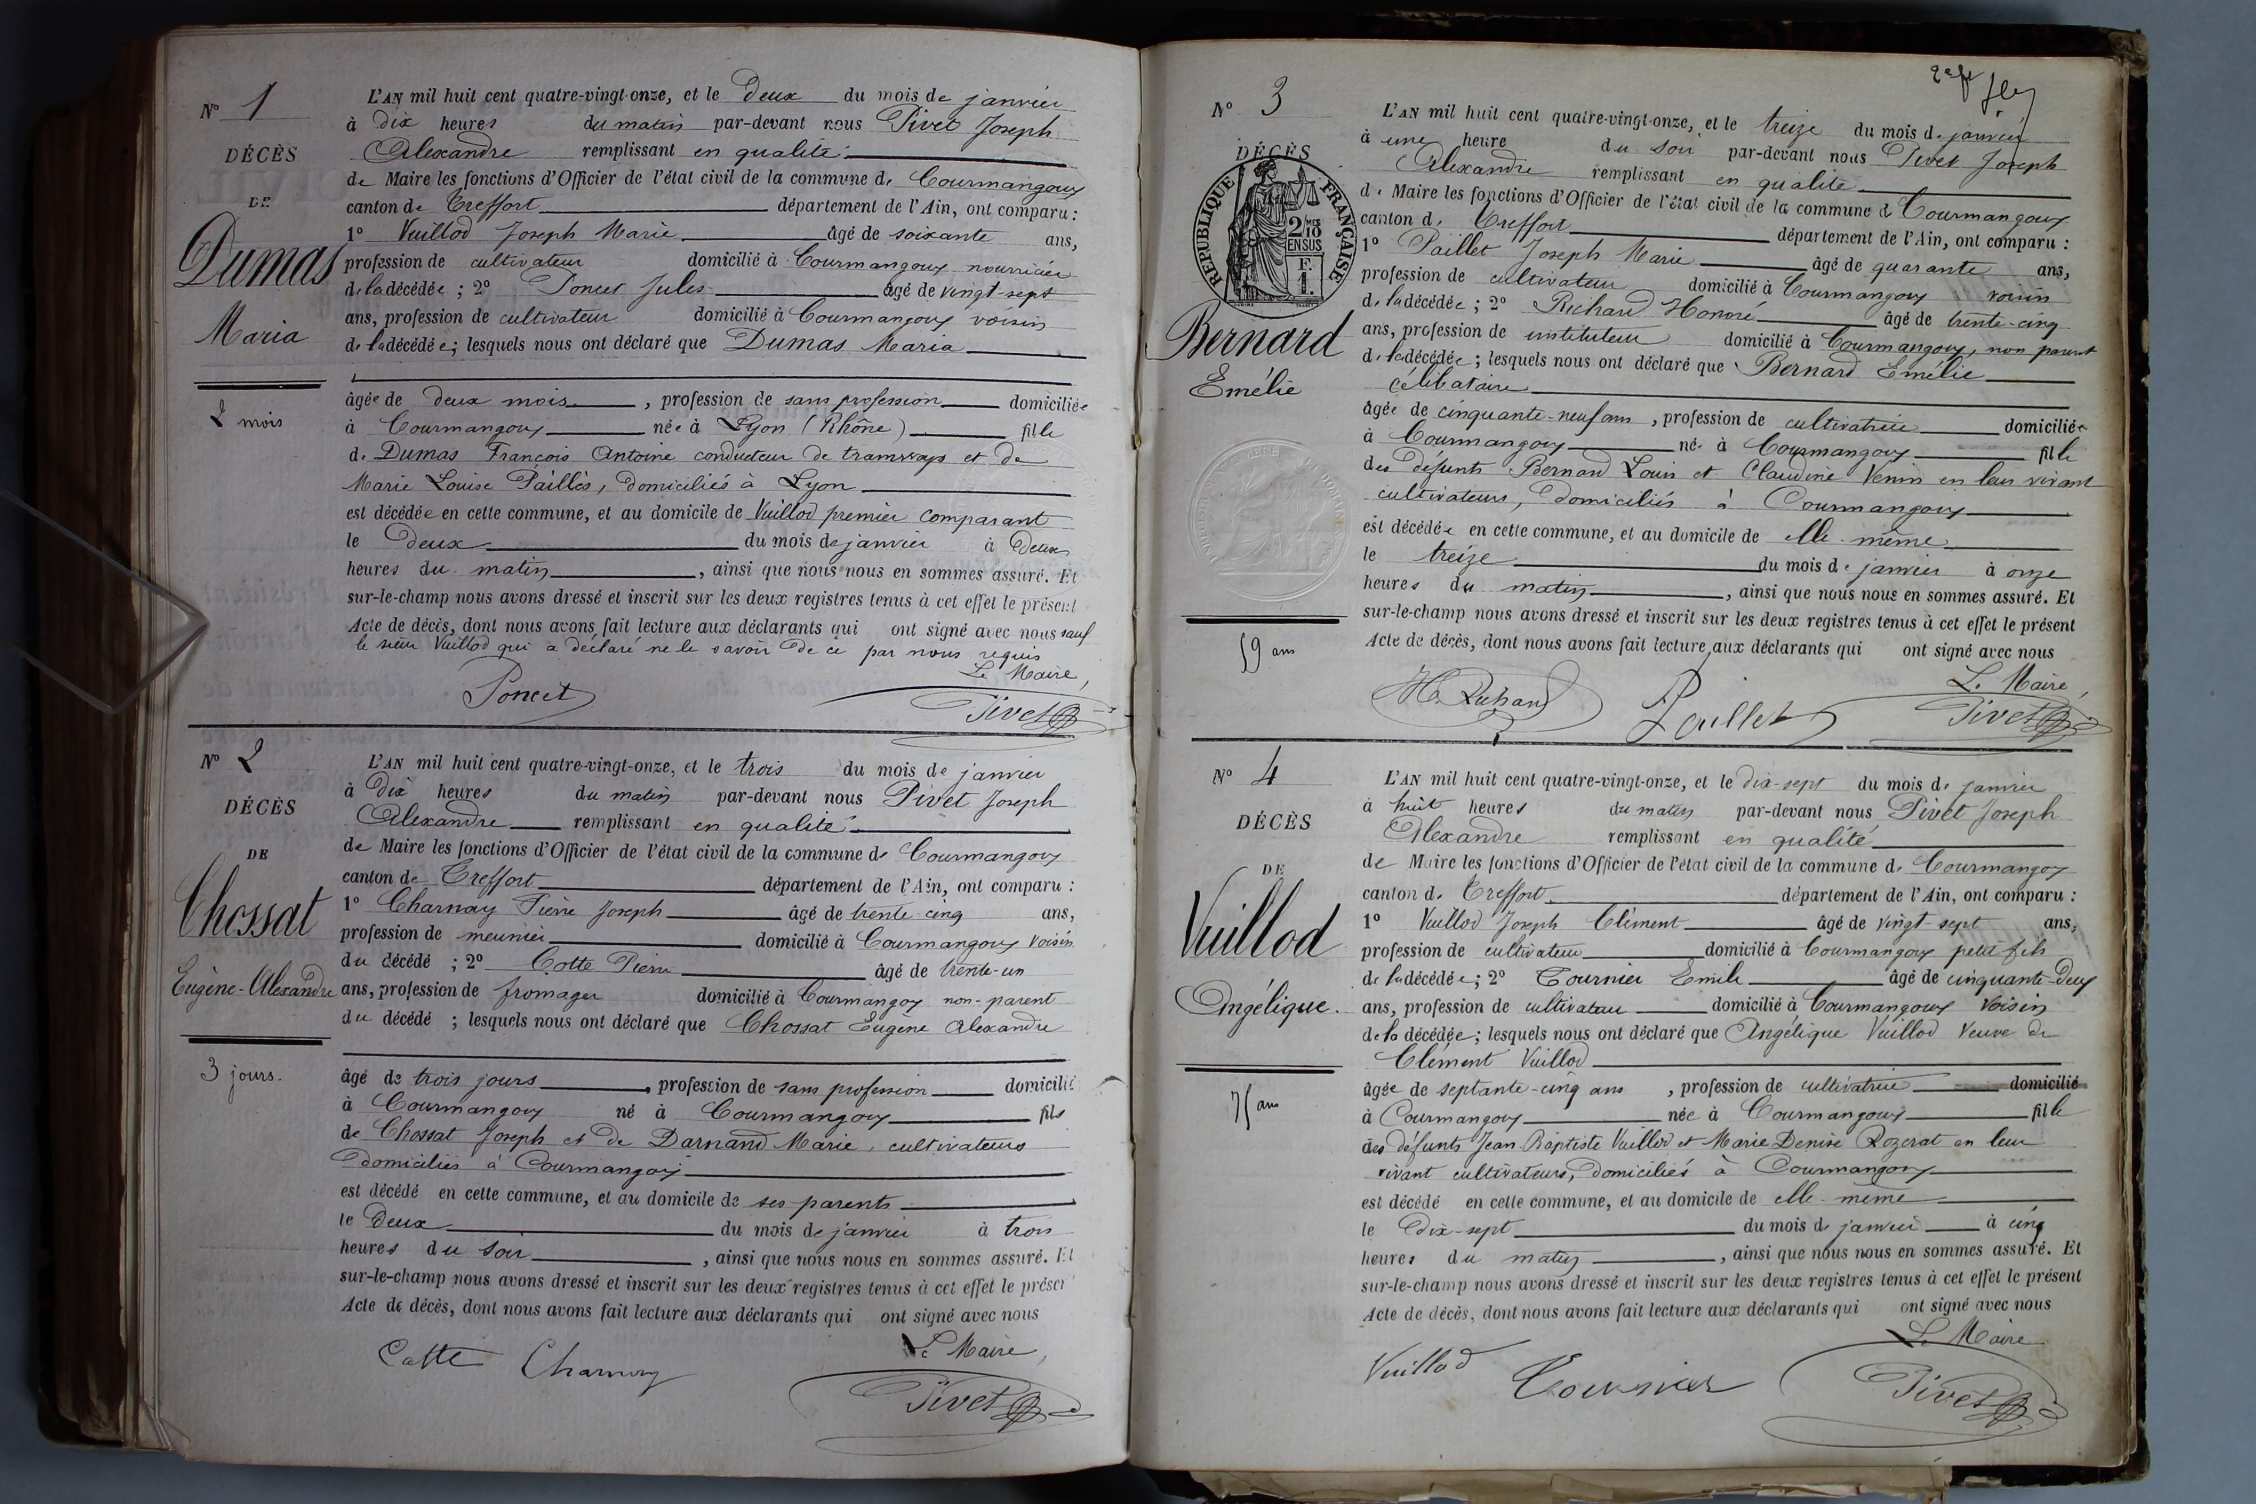 N° 1
DÉCÈS
DE
Dumas
Maria
2 mois
L'AN mil huit cent quatre-vingt-onze, et le deux du mois de janvier
à dix heures du matin par-devant nous Pivet Joseph
Alexandre remplissant en qualité
de Maire les fonctions d'Officier de l'état civil de la commune de Courmangoux
canton de Treffort département de l'Ain, ont comparu :
1° Vuillod Joseph Marie âgé de soixante ans,
profession de cultivateur domicilié à Courmangoux nourricier
de la décédée ; 2° Poncet Jules âgé de vingt-sept
ans, profession de cultivateur domicilié à Courmangoux voisin
de la décédée ; lesquels nous ont déclaré que Dumas Maria
âgée de deux mois , profession de sans profession domiciliée
à Courmangoux née à Lyon (Rhône) fille
de Dumas François Antoine conducteur de tramways et de
Marie Louise Paillès, domiciliés à Lyon
est décédée en cette commune, et au domicile de Vuillod premier comparant
le deux du mois de janvier à deux
heures du matin , ainsi que nous nous en sommes assuré. Et
sur-le-champ nous avons dressé et inscrit sur les deux registres tenus à cet effet le présent
Acte de décès, dont nous avons fait lecture aux déclarants qui ont signé avec nous sauf
le sieur Vuillod qui a déclaré ne le savoir de ce par nous requis
Le Maire,
Poncet Pivet
N° 2
DÉCÈS
DE
Chossat
Eugène-Alexandre
3 jours.
L'AN mil huit cent quatre-vingt-onze, et le trois du mois de janvier
à dix heures du matin par-devant nous Pivet Joseph
Alexandre remplissant en qualité
de Maire les fonctions d'Officier de l'état civil de la commune de Courmangoux
canton de Treffort département de l'Ain, ont comparu :
1° Charnay Pierre Joseph âgé de trente-cinq ans,
profession de meunier domicilié à Courmangoux voisin
du décédé ; 2° Cotte Pierre âgé de trente-un
ans, profession de fromager domicilié à Courmangoux non-parent
du décédé ; lesquels nous ont déclaré que Chossat Eugène Alexandre
âgé de trois jours , profession de sans profession domicilié
à Courmangoux né à Courmangoux fils
de Chossat Joseph et de Darnand Marie, cultivateurs
domiciliés à Courmangoux
est décédé en cette commune, et au domicile de ses parents
le deux du mois de janvier à trois
heures du soir , ainsi que nous nous en sommes assuré. Et
sur-le-champ nous avons dressé et inscrit sur les deux registres tenus à cet effet le présen
Acte de décès, dont nous avons fait lecture aux déclarants qui ont signé avec nous
Le Maire,
Cotte Charnay
Pivet
N° 3
DÉCÈS
RÉPUBLIQUE FRANÇAISE
2/10 EN SUS
F. 1.
Bernard
Emélie
59 ans
L'AN mil huit cent quatre-vingt-onze, et le treize du mois de janvier
à une heure du soir par-devant nous Pivet Joseph
Alexandre remplissant en qualité
de Maire les fonctions d'Officier de l'état civil de la commune de Courmangoux
canton de Treffort département de l'Ain, ont comparu :
1° Paillet Joseph Marie âgé de quarante ans,
profession de cultivateur domicilié à Courmangoux voisin
de la décédée ; 2° Richard Honoré âgé de trente-cinq
ans, profession de instituteur domicilié à Courmangoux, non parent
de la décédée ; lesquels nous ont déclaré que Bernard Emélie
célibataire
âgée de cinquante-neuf ans , profession de cultivatrice domiciliée
à Courmangoux née à Courmangoux fille
des défunts Bernard Louis et Claudine Venin en leur vivant
cultivateurs, domiciliés à Courmangoux
est décédée en cette commune, et au domicile de elle-même
le treize du mois de janvier à onze
heures du matin , ainsi que nous nous en sommes assuré. Et
sur-le-champ nous avons dressé et inscrit sur les deux registres tenus à cet effet le présent
Acte de décès, dont nous avons fait lecture aux déclarants qui ont signé avec nous
Le Maire,
H. Richard Paillet Pivet
N° 4
DÉCÈS
DE
Vuillod
Angélique.
75 ans
L'AN mil huit cent quatre-vingt-onze, et le dix-sept du mois de janvier
à huit heures du matin par-devant nous Pivet Joseph
Alexandre remplissant en qualité
de Maire les fonctions d'Officier de l'état civil de la commune de Courmangoux
canton de Treffort département de l'Ain, ont comparu :
1° Vuillod Joseph Clément âgé de vingt-sept ans,
profession de cultivateur domicilié à Courmangoux petit fils
de la décédée ; 2° Tournier Emile âgé de cinquante-deux
ans, profession de cultivateur domicilié à Courmangoux voisin
de la décédée ; lesquels nous ont déclaré que Angélique Vuillod veuve de
Clément Vuillod
âgée de septante-cinq ans , profession de cultivatrice domicilié
à Courmangoux née à Courmangoux fille
des défunts Jean Baptiste Vuillod et Marie Denise Rozerat en leur
vivant cultivateurs, domiciliés à Courmangoux
est décédé en cette commune, et au domicile de elle-même
le dix-sept du mois de janvier à cinq
heures du matin , ainsi que nous nous en sommes assuré. Et
sur-le-champ nous avons dressé et inscrit sur les deux registres tenus à cet effet le présent
Acte de décès, dont nous avons fait lecture aux déclarants qui ont signé avec nous
Le Maire
Vuillod Tournier Pivet